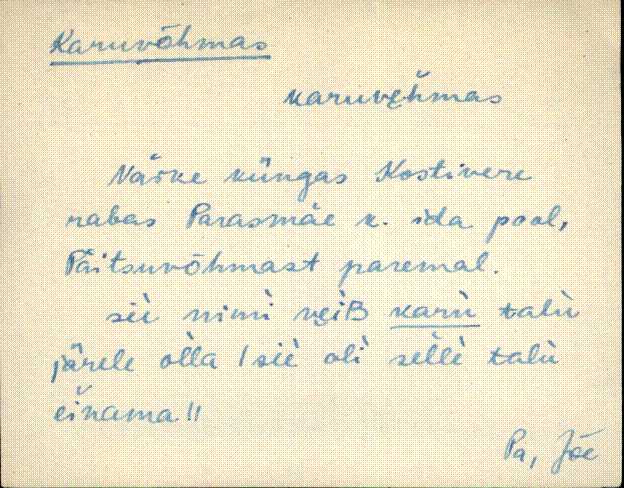 Karuvõhmas
karuvȩȟmas
Väike küngas Kostivere
rabas Parasmäe k. ida pool,
Päitsuvõhmast paremal.
siè nimì vȩiB karù talù
järele òlla / siè olì sellè talù
eìnama!!
Pa, Jõe